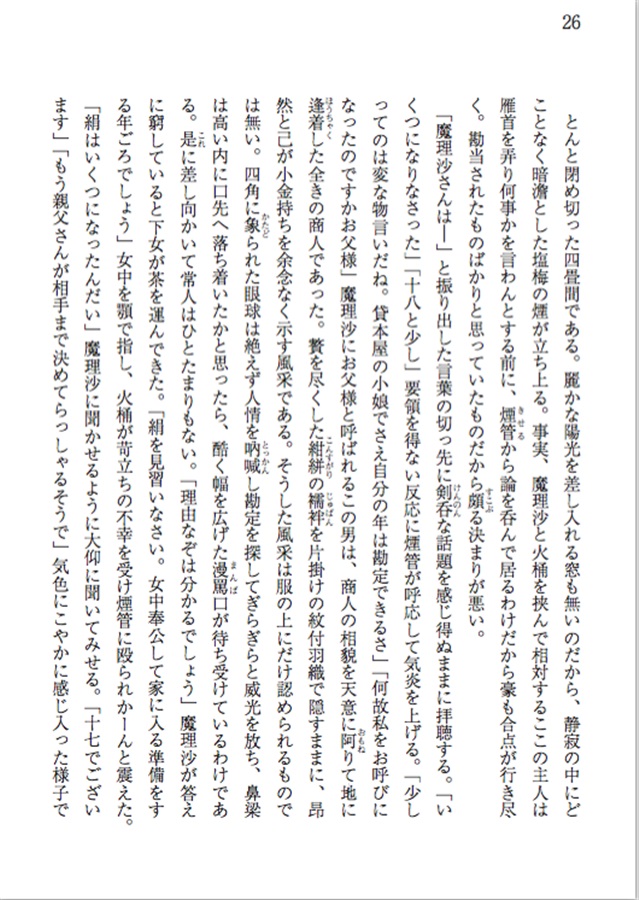 26
とんと閉め切った四畳間である。麗かな陽光を差し入れる窓も無いのだから、静寂の中にど
ことなく暗澹とした塩梅の煙が立ち上る。事実、魔理沙と火桶を挟んで相対するここの主人は
雁首を弄り何事かを言わんとする前に、煙管から論を呑んで居るわけだから豪も合点が行き尽
く。勘当されたものばかりと思っていたものだから頗る決まりが悪い。
「魔理沙さんは―」と振り出した言葉の切っ先に剣呑な話題を感じ得ぬままに拝聴する。「い
くつになりなさった」「十八と少し」要領を得ない反応に煙管が呼応して気炎を上げる。「少し
ってのは変な物言いだね。貸本屋の小娘でさえ自分の年は勘定できるさ」「何故私をお呼びに
なったのですかお父様」魔理沙にお父様と呼ばれるこの男は、商人の相貌を天意に阿りて地に
逢着した全きの商人であった。贅を尽くした紺絣の襦袢を片掛けの紋付羽織で隠すままに、昂
然と己が小金持ちを余念なく示す風采である。そうした風采は服の上にだけ認められるもので
は無い。四角に象られた眼球は絶えず人情を吶喊し勘定を探してぎらぎらと威光を放ち、鼻梁
は高い内に口先へ落ち着いたかと思ったら、酷く幅を広げた漫罵口が待ち受けているわけであ
る。是に差し向かいて常人はひとたまりもない。「理由なぞは分かるでしょう」魔理沙が答え
に窮していると下女が茶を運んできた。「絹を見習いなさい。女中奉公して家に入る準備をす
る年ごろでしょう」女中を顎で指し、火桶が苛立ちの不幸を受け煙管に殴られかーんと震えた。
「絹はいくつになったんだい」魔理沙に聞かせるように大仰に聞いてみせる。「十七でござい
ます」「もう親父さんが相手まで決めてらっしゃるそうで」気色にこやかに感じ入った様子で